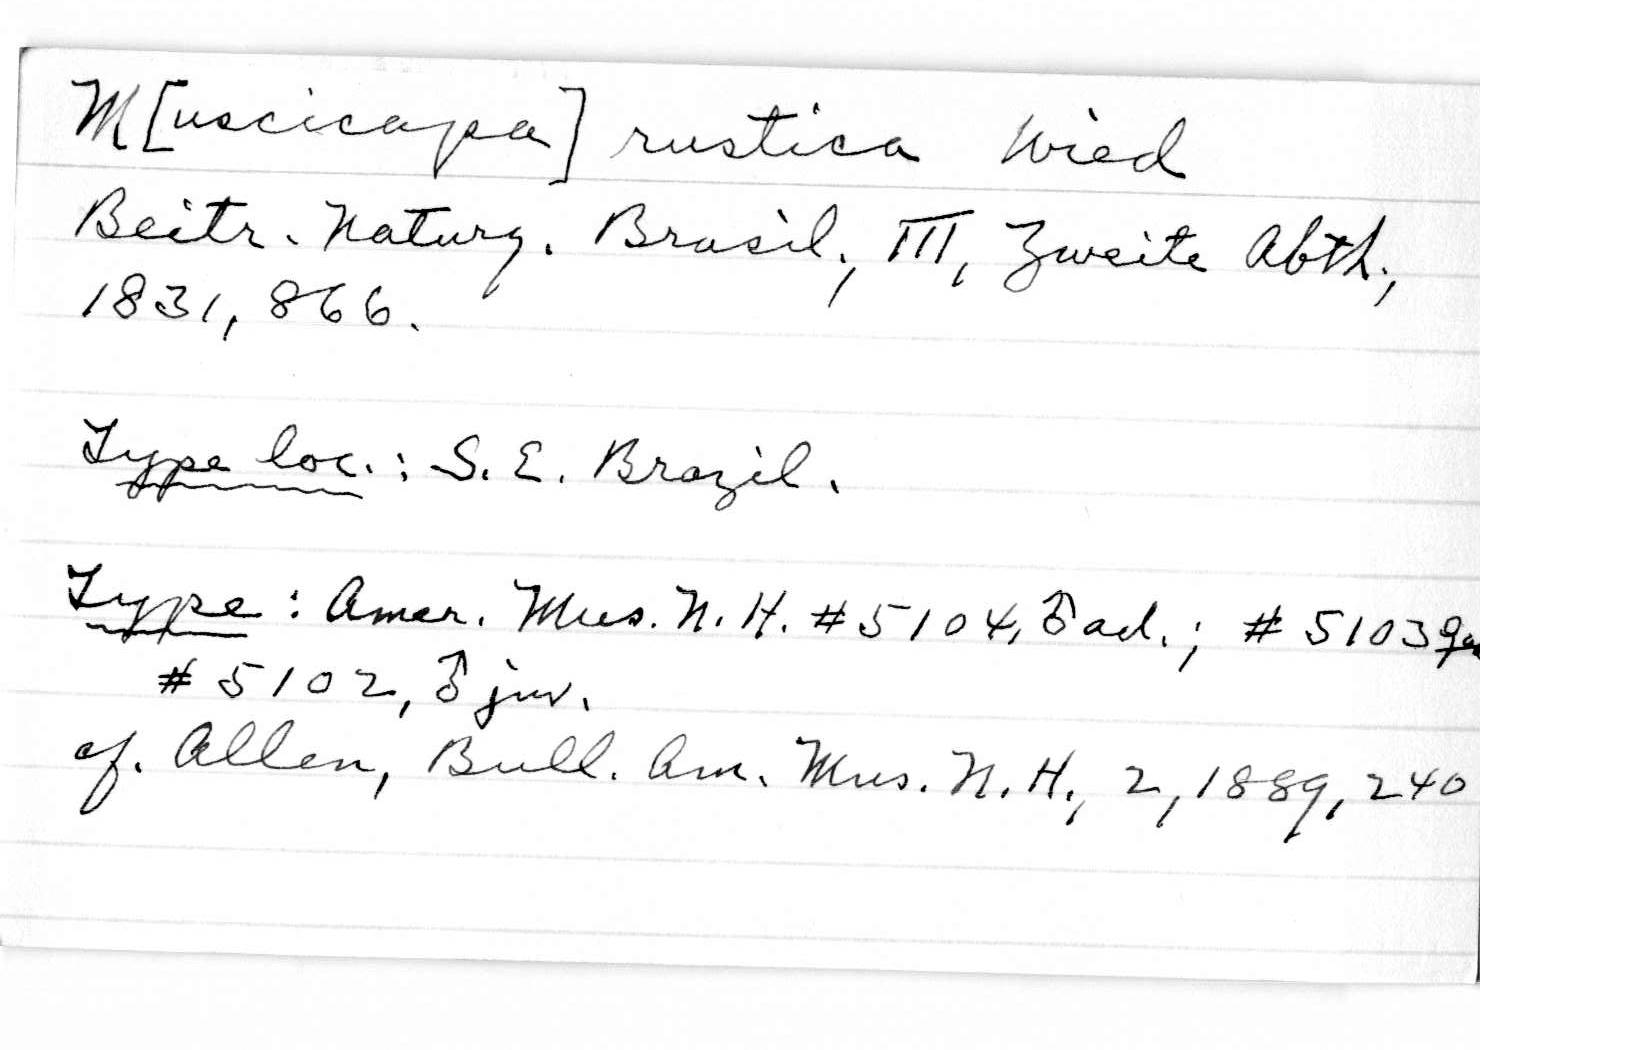 M[uscicapa] rustica Wied
Beitr. Naturg. Brasil., III, Zweite Abth.,
1831, 866.
Type loc.: S. E. Brazil.
Type: Amer. Mus. N. H. #5104, ♂ ad.; #5103 ♀
#5102, ♂ juv.
cf. Allen, Bull. Am. Mus. N. H., 2, 1889, 240